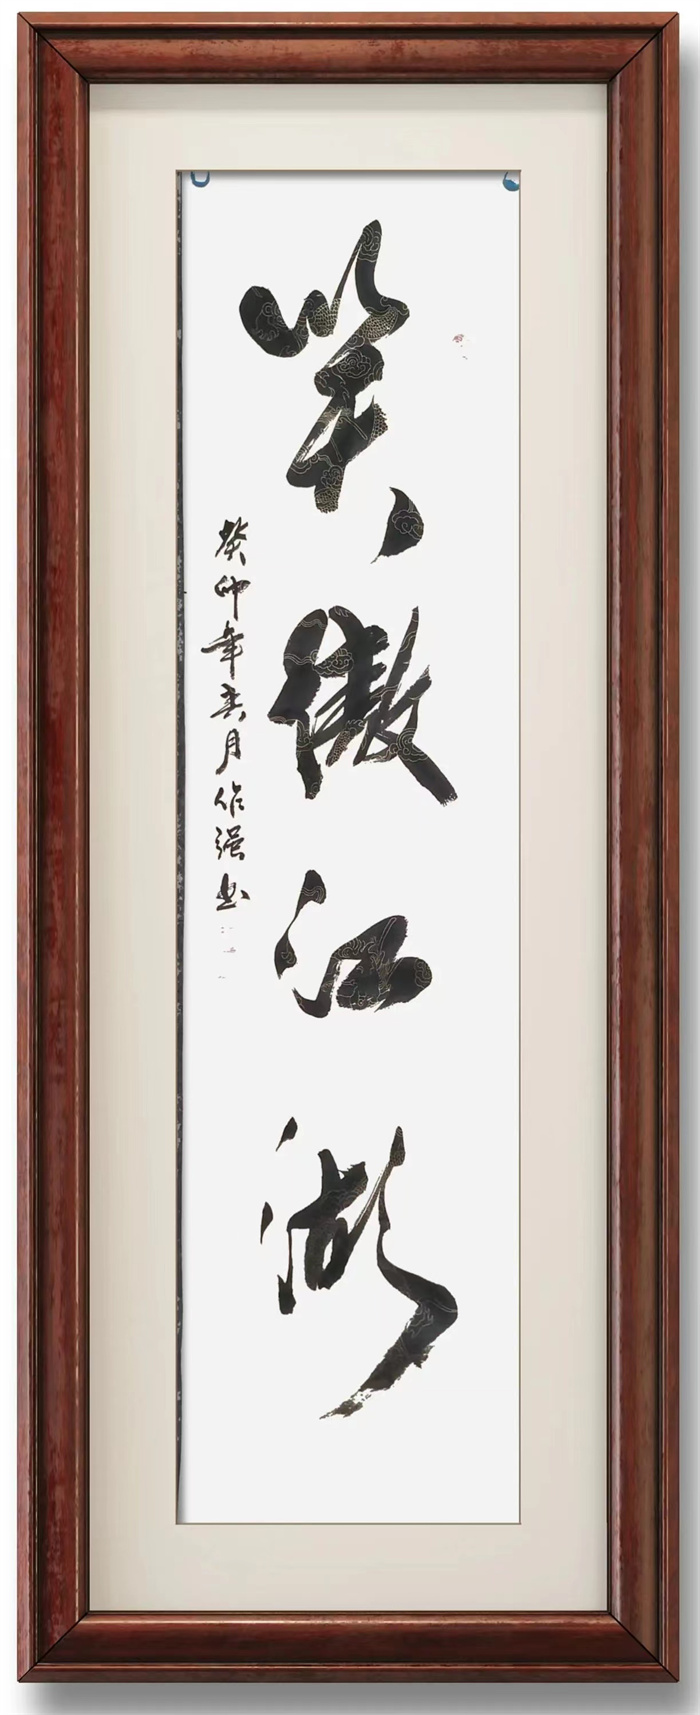 笑傲江湖
癸卯年春月作强书